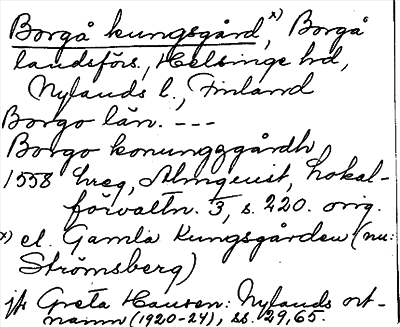 Borgå kungsgård,x) Borgå
landsförs., Helsinge hd,
Nylands l., Finland
Borgo län. ---
Borgo konungzgårdh
1558 hreg, Almquist, Lokal-
förvaltn. 3, s. 220. orig.
x) el. Gamla Kungsgården (nu:
Strömsberg)
jfr Greta Hausen: Nylands ort-
namn (1920-24), ss. 29, 65.